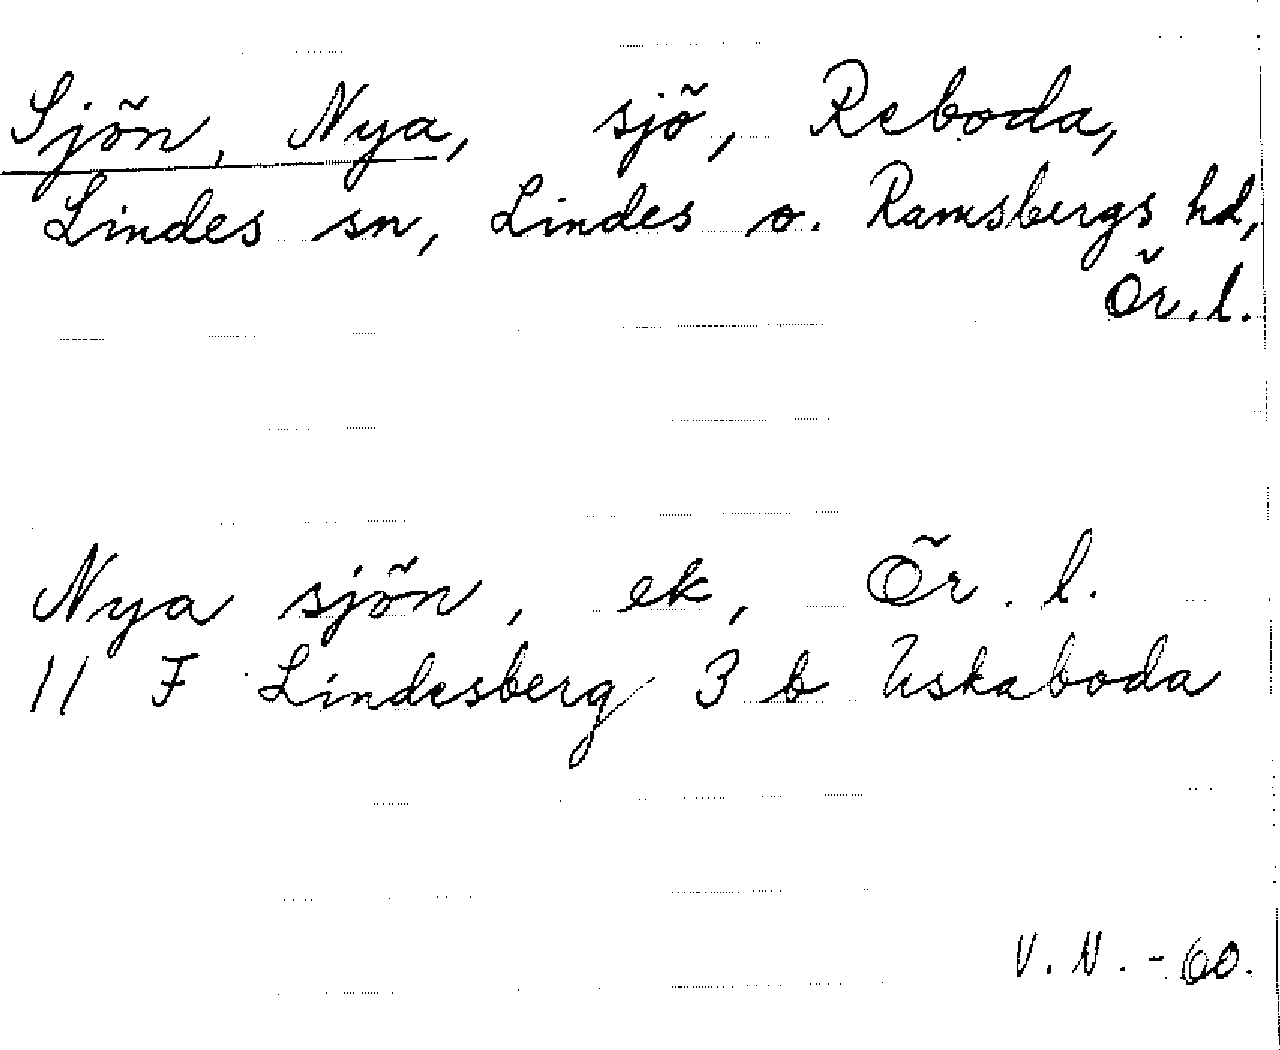 Sjön, Nya, sjö, Reboda,
Lindes sn, Lindes o. Ramsbergs hd,
Ör. l.
Nya sjön, ek, Ör. l.
11 F Lindesberg 3 b Uskaboda
V. N. - 60.